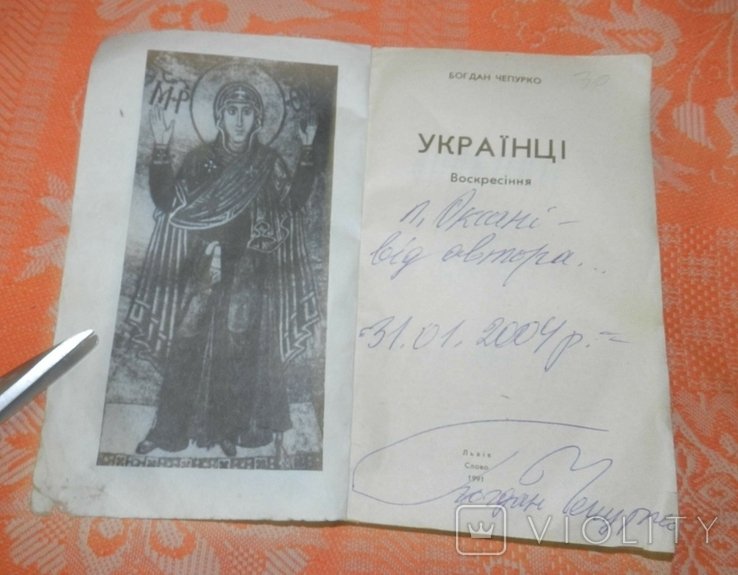 М-Р
БОГДАН ЧЕПУРКО
30
УКРАЇНЦІ
Воскресіння
п. Оксані –
від автора...
-31.01.2004 р.-
Львів
Слово
1991
Богдан Чепурко
VIOLITY